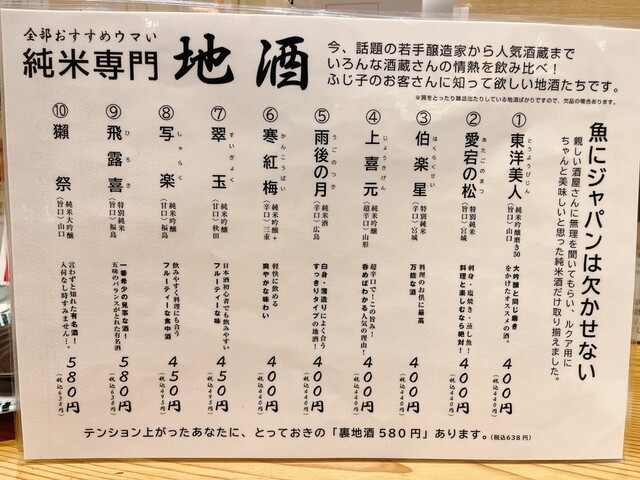 全部おすすめウマい
純米専門 地酒
今、話題の若手醸造家から人気酒蔵まで
いろんな酒蔵さんの情熱を飲み比べ！
ふじ子のお客さんに知って欲しい地酒たちです。
※賞をとったり雑誌出たりしている地酒ばかりですので、欠品の場合あります。
魚にジャパンは欠かせない
親しい酒屋さんに無理を聞いてもらい、ルクア用に
ちゃんと美味しいと思った純米酒だけ取り揃えました。
① 東洋美人 とうようびじん
純米吟醸磨き50
（旨口）山口
大吟醸と同じ磨き
をかけたオススメの酒。
400円
（税込440円）
② 愛宕の松 あたごのまつ
特別純米
（旨口）宮城
刺身・塩焼き・蒸し魚！
料理と楽しむなら絶対！
400円
（税込440円）
③ 伯楽星 はくらくせい
純米吟醸
（辛口）宮城
料理のお供に最高
万能な酒
400円
（税込440円）
④ 上喜元 じょうきげん
純米吟醸
（超辛口）山形
超辛口で！この旨み！
呑めばわかる人気の理由！
400円
（税込440円）
⑤ 雨後の月 うごのつき
純米酒
（辛口）広島
白身・薄造りによく合う
すっきりタイプの地酒！
400円
（税込440円）
⑥ 寒紅梅 かんこうばい
純米吟醸
（辛口）三重
軽快に飲める
爽やかな味わい
400円
（税込440円）
⑦ 翠玉 すいぎょく
純米吟醸
（甘口）秋田
日本酒初心者でも飲みやすい
フルーティーな味
450円
（税込495円）
⑧ 写楽 しゃらく
純米吟醸
（旨口）福島
飲みやすく料理にも合う
フルーティーな食中酒
450円
（税込495円）
⑨ 飛露喜 ひろき
特別純米
（旨口）福島
一番希少の見事な酒！
五味のバランスがとれた有名酒
580円
（税込638円）
⑩ 獺祭
純米大吟醸
（旨口）山口
言わずと知れた有名酒！
入荷なし時すみません…。
580円
（税込638円）
テンション上がったあなたに、とっておきの「裏地酒580円」あります。（税込638円）